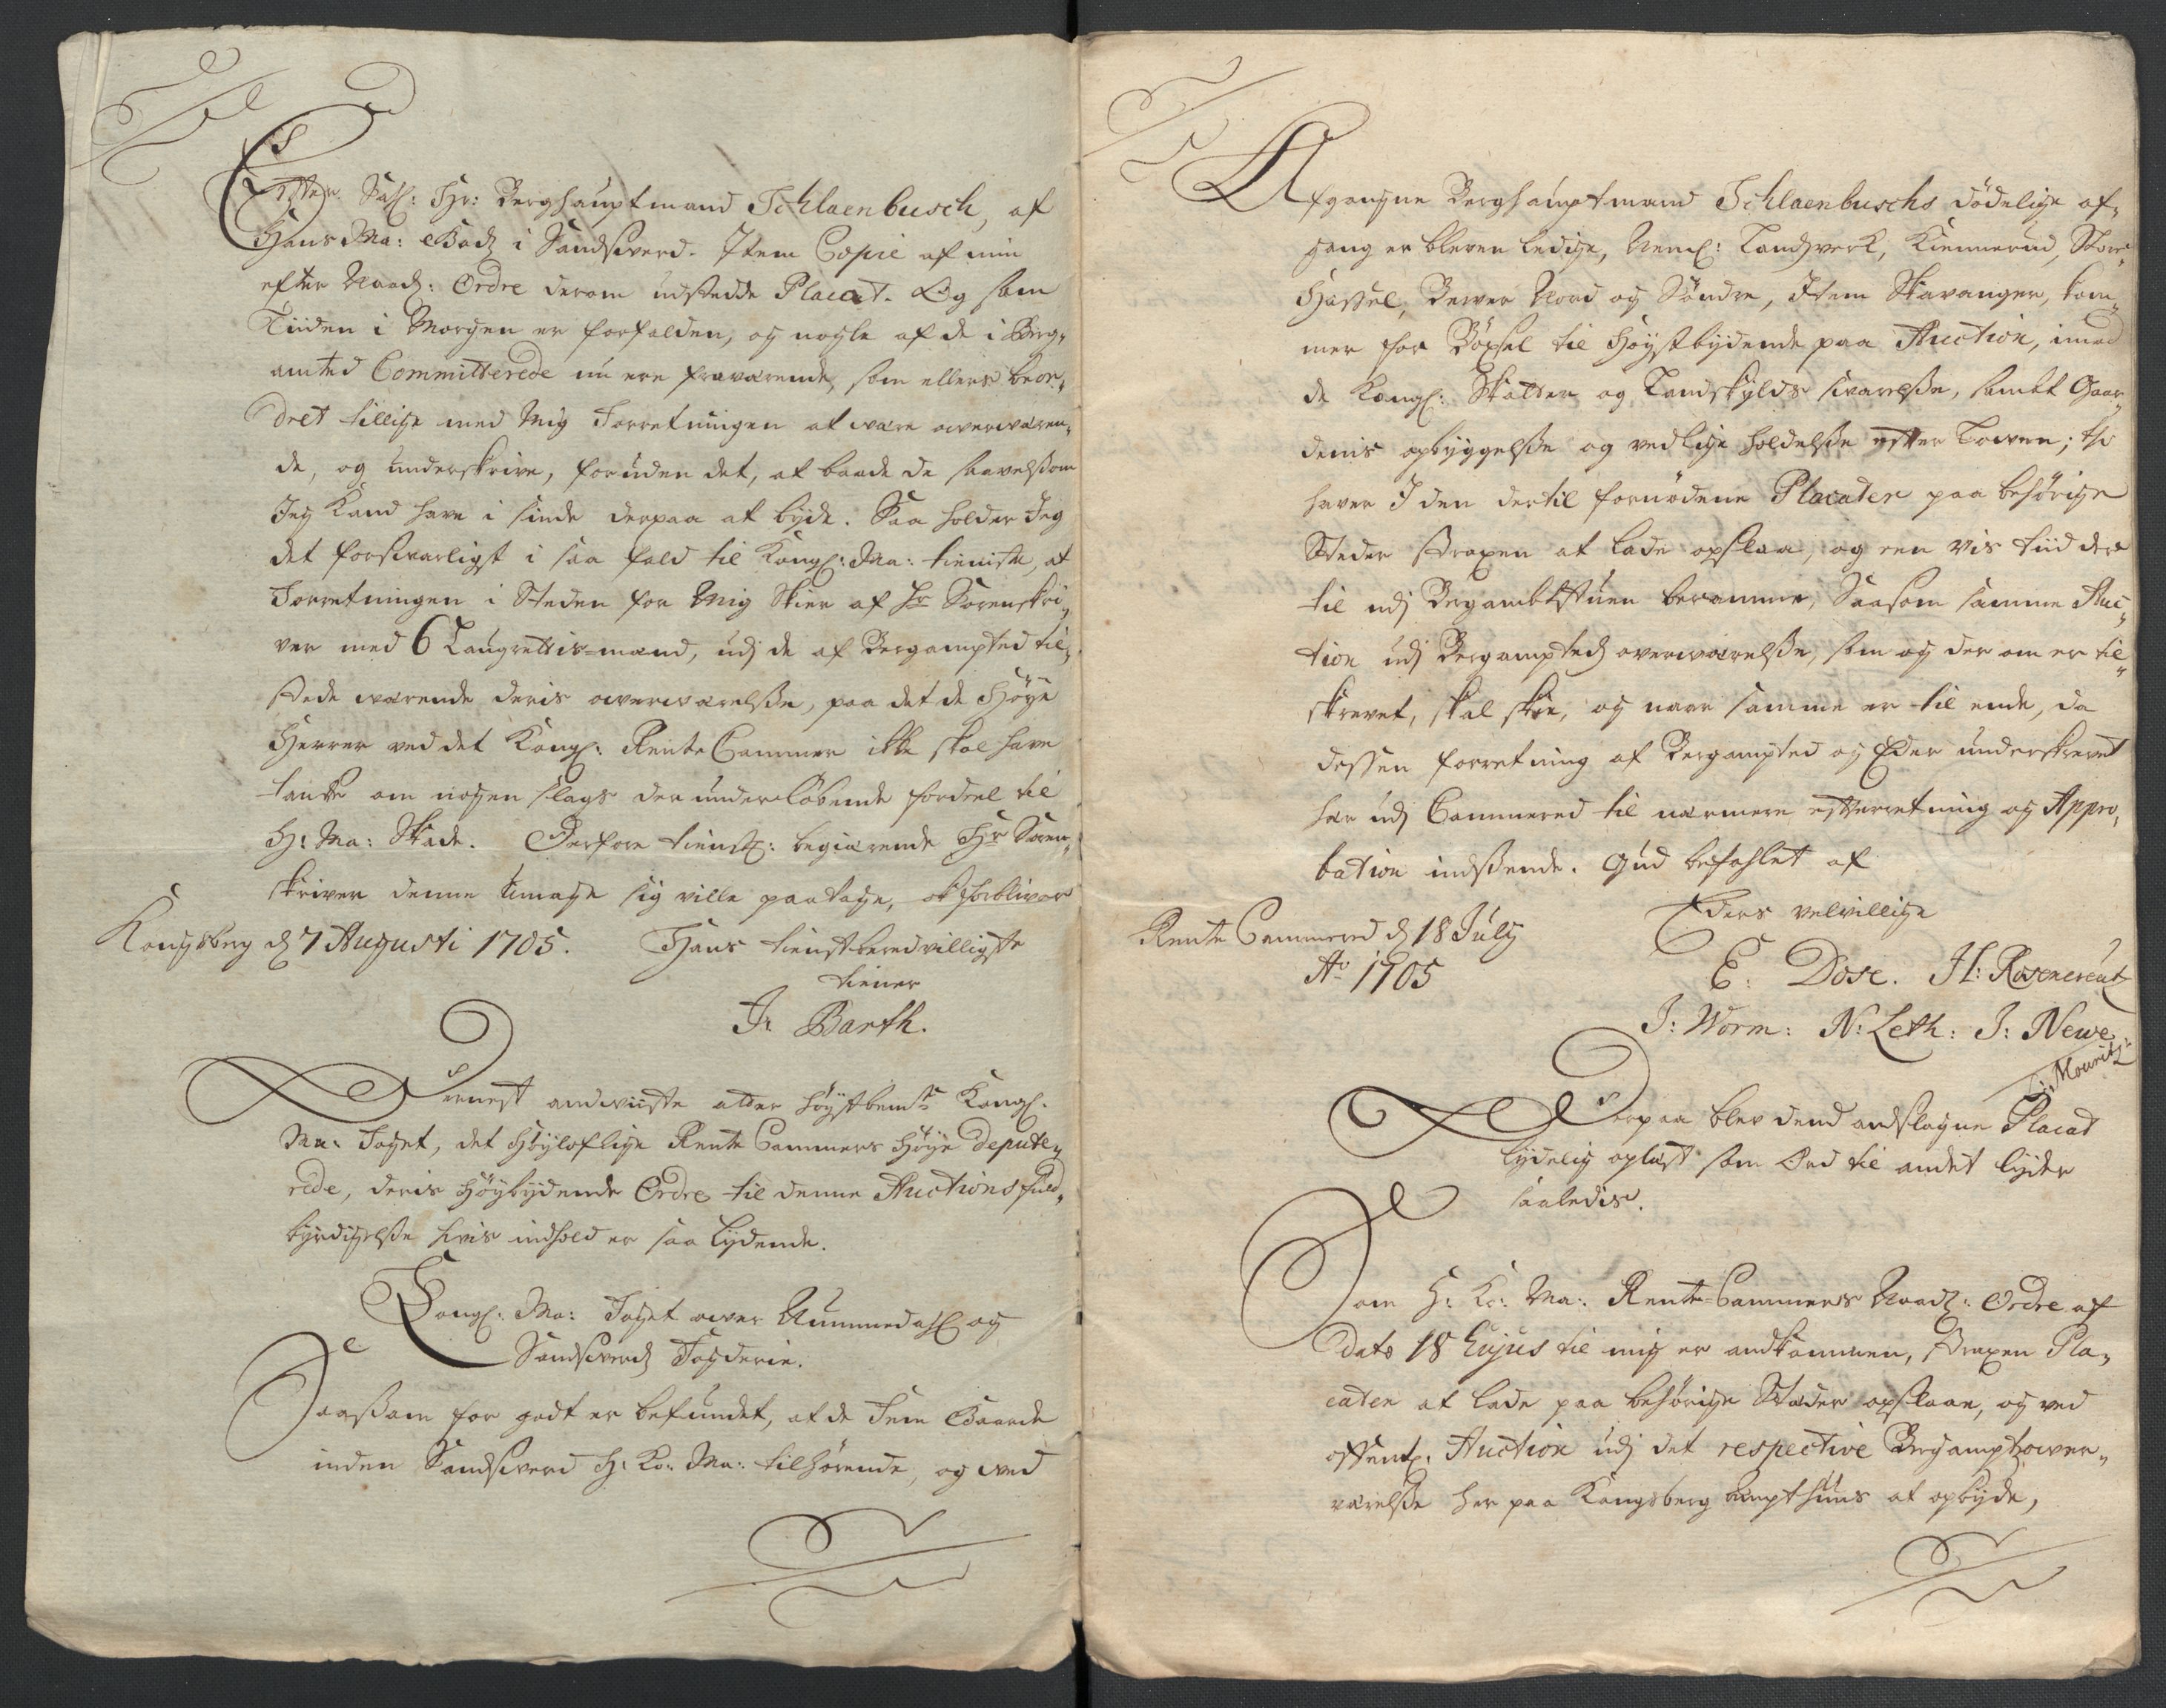 Efter Sal: Hr: Berghauptmand Schlaenbusch, af
Hans Ma: Gods i Sandsverd. Item Copie af min
efter Naad: Ordre derom udstedde Placat. Og som
Tiiden i Morgen er forfalden, og nogle af de i Berg,,
amted Committerede nu ere fraværende, som ellers beor,,
dret tillige med Mig Forretningen at være overværen,,
de, og underskrive, foruden det, at baade de saavelsom
Jeg Kand have i sinde derpaa at byde. Saa holder Jeg
det forsvarligst i saa fald til Kongl: Ma: tieniste, at
Forretningen i Steden for Mig skier af Hr Sorenskri,,
ver med 6 Laugrettis-mænd, udj de af Bergampted til,,
stede værende deris overværelsse, paa det de Høye
Herrer ved det Kongl: Rente Cammer ikke skal have
tanke om nogen slags der underløbende fordeel til
H: Ma: Skade. Derfore tienstl: begiærende Hr Soren,,
skriver denne umage sig ville paatage, forbliver
Kongsberg d 7 Augusti 1705. Hans tienstberedvilligste
tiener
Jr Barth.
Dernest andviiste atter høystbemte Kongl:
Ma: Foget, det Høyloflige Rente Cammers Høye Depute,,
rede, deris Høybydende Ordre til denne Auctions fuld,,
byrdigelsse hvis indhold er saa lydende.
Kongl: Ma: Foget over Nummedahl og
Sandsverds Fogderie.
Saassom for godt er befundet, at de Fem Gaarde
inden Sandsverd H: Ko: Ma: tilhørende, og ved
Afgangne Berghauptmand Schlaenbuschs dødelige af,,
gang er bleven ledige, Neml: Landsverk, Kiennerud, Store
Hassel, Bever Nord og Søndre, Item Skavanger, kom,,
mer for Bøxsel til Høystbydende paa Auction, imod
de Kongl: Skatter og Landskylds svarelsse, samt Gaar,,
denis opbyggelsse og vedlige holdelsse efter Loven; thi
haver I den dertil fornødene Placater paa behørige
Steder straxen at lade opslaa, og een vis tiid der
til udj Bergambtstuen beramme, Saasom samme Auc,,
tion udj Bergampteds overværelsse, som og der om er til,,
skrevet, skal skee, og naar samme er til ende, da
dessen forretning af Bergampted og Eder underskrevet
her udj Cammered til nærmere efterretning og Appro,,
bation indssende. Gud befahlet af
Eders velvillige
Rente Cammered d 18 July
Ao 1705
E: Dose. H: Rosencreutz
J: Worm: N: Leth: J: Newe
L: Mouritz:
Derpaa blev dend andslagne Placat
lydelig oplæst som Ord til andet lyder
saaledis.
Som H: Ko: Ma: Rente-Cammers Naad: Ordre af
Dato 18 hujus til mig er andkommen, straxen Pla,,
caten at lade paa behørige Stæder opslaae, og ved
offentl: Auction udj det respective Bergampts over,,
værelsse her paa Kongsberg ampthuus at opbyde,